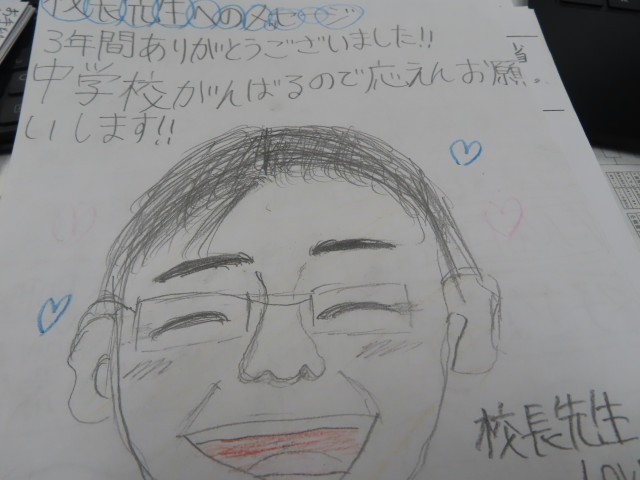 校長先生へのメッセージ
3年間ありがとうございました!!
中学校がんばるので応えんお願
いします!!
校長先生